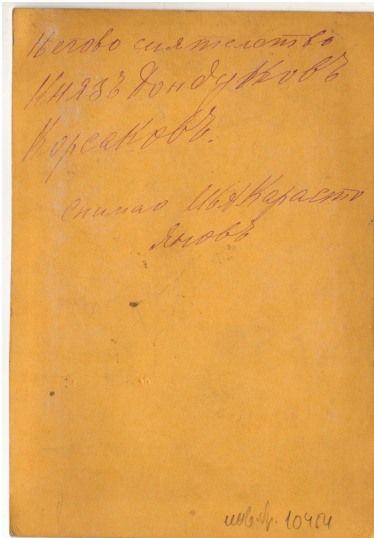 Негово сиятелство
Князъ Дондуковъ
Корсаковъ.
снимао Ив. А Карасто
яновъ
инв. №. 10484